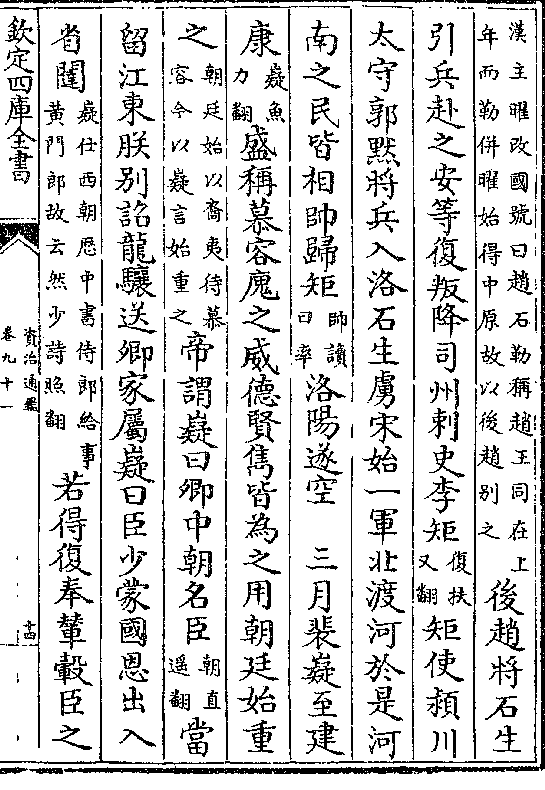 漢主曜改國號曰趙石勒稱趙王同在上年而勒併曜始得中原故以後趙別之後趙將石生
引兵赴之安等復叛降司州刺史李矩復扶又翻矩使潁川
太守郭黙將兵入洛石生虜宋始一軍北渡河於是河
南之民皆相帥歸矩帥讀曰率洛陽遂空　三月裴嶷至建
康嶷魚力翻盛稱慕容廆之威德賢雋皆為之用朝廷始重
之朝廷始以裔夷待慕容今以嶷言始重之帝謂嶷曰卿中朝名臣朝直遥翻當
留江東朕別詔龍驤送卿家屬嶷曰臣少蒙國恩出入
省闥嶷仕西朝歴中書侍郎給事黄門郎故云然少詩照翻若得復奉輦轂臣之
欽定四庫全書
資治通鑑
卷九十一
十四